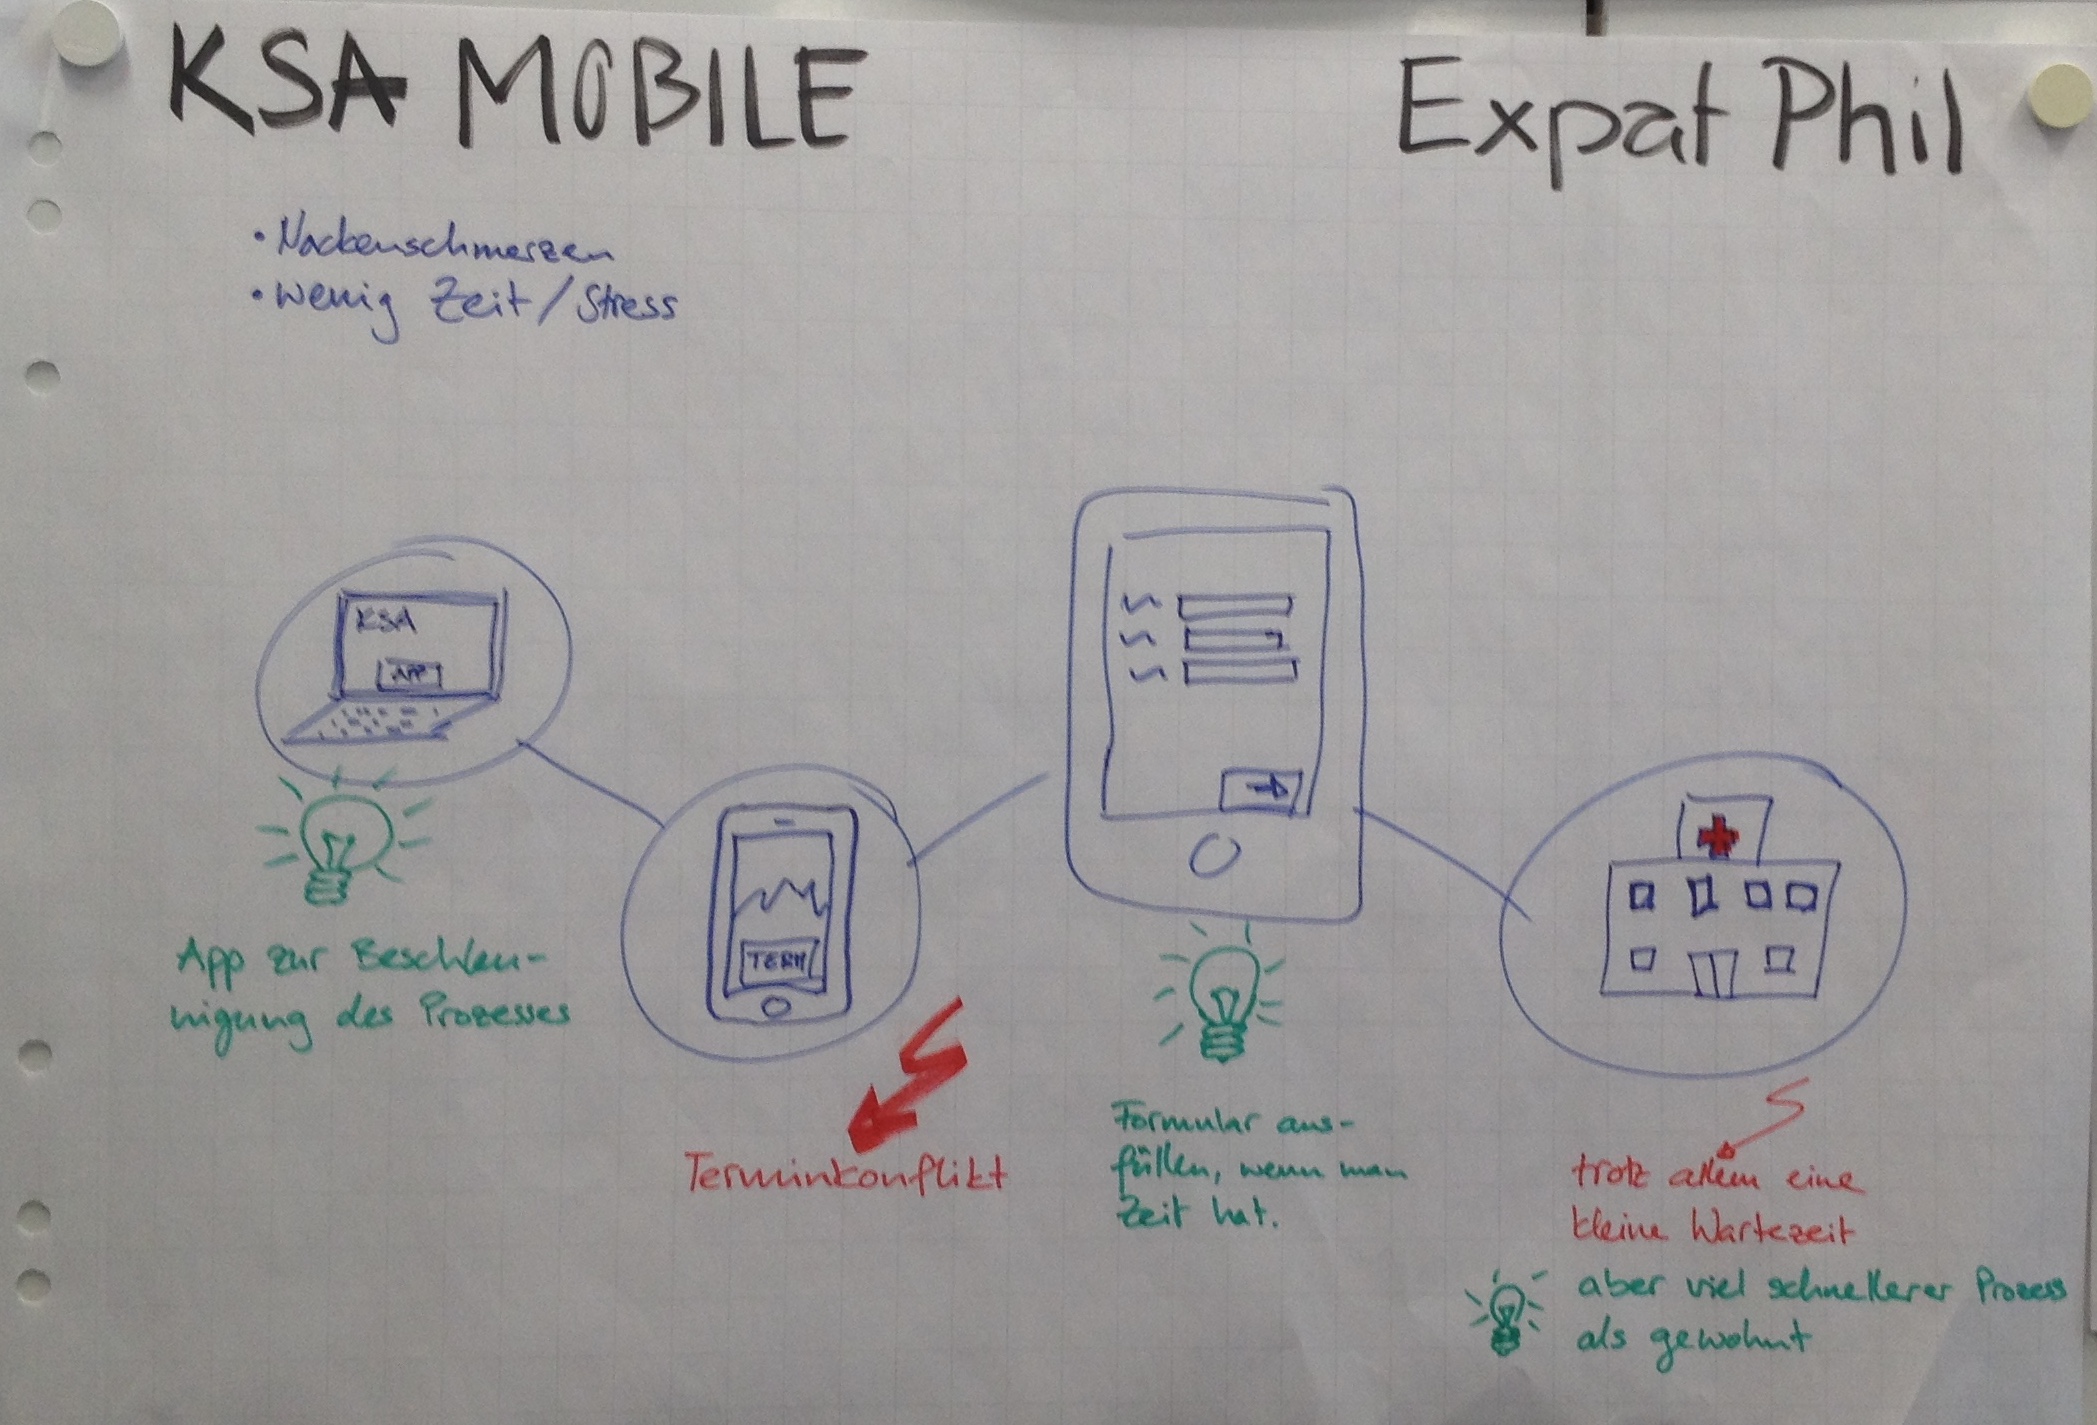 KSA MOBILE
Expat Phil
• Nackenschmerzen
• wenig Zeit / Stress
KSA
APP
TERM
App zur Beschleu-
nigung des Prozesses
Terminkonflikt
Formular aus-
füllen, wenn man
Zeit hat.
trotz allem eine
kleine Wartezeit
aber viel schnellerer Prozess
als gewohnt